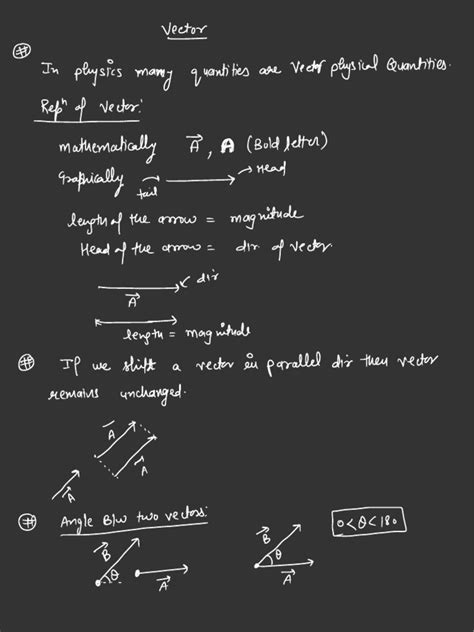 Vector
# In physics many quantities are Vector physical Quantities.
Repⁿ of Vector:
mathematically A⃗, A (Bold letter)
Graphically tail → Head
length of the arrow = magnitude
Head of the arrow = dir of vector
dir
A⃗
length = magnitude
# If we shift a vector in parallel dir then vector
remains unchanged.
A⃗
A⃗
A⃗
# Angle B/w two vectors:
0<θ<180
B⃗ θ A⃗ B⃗ θ A⃗